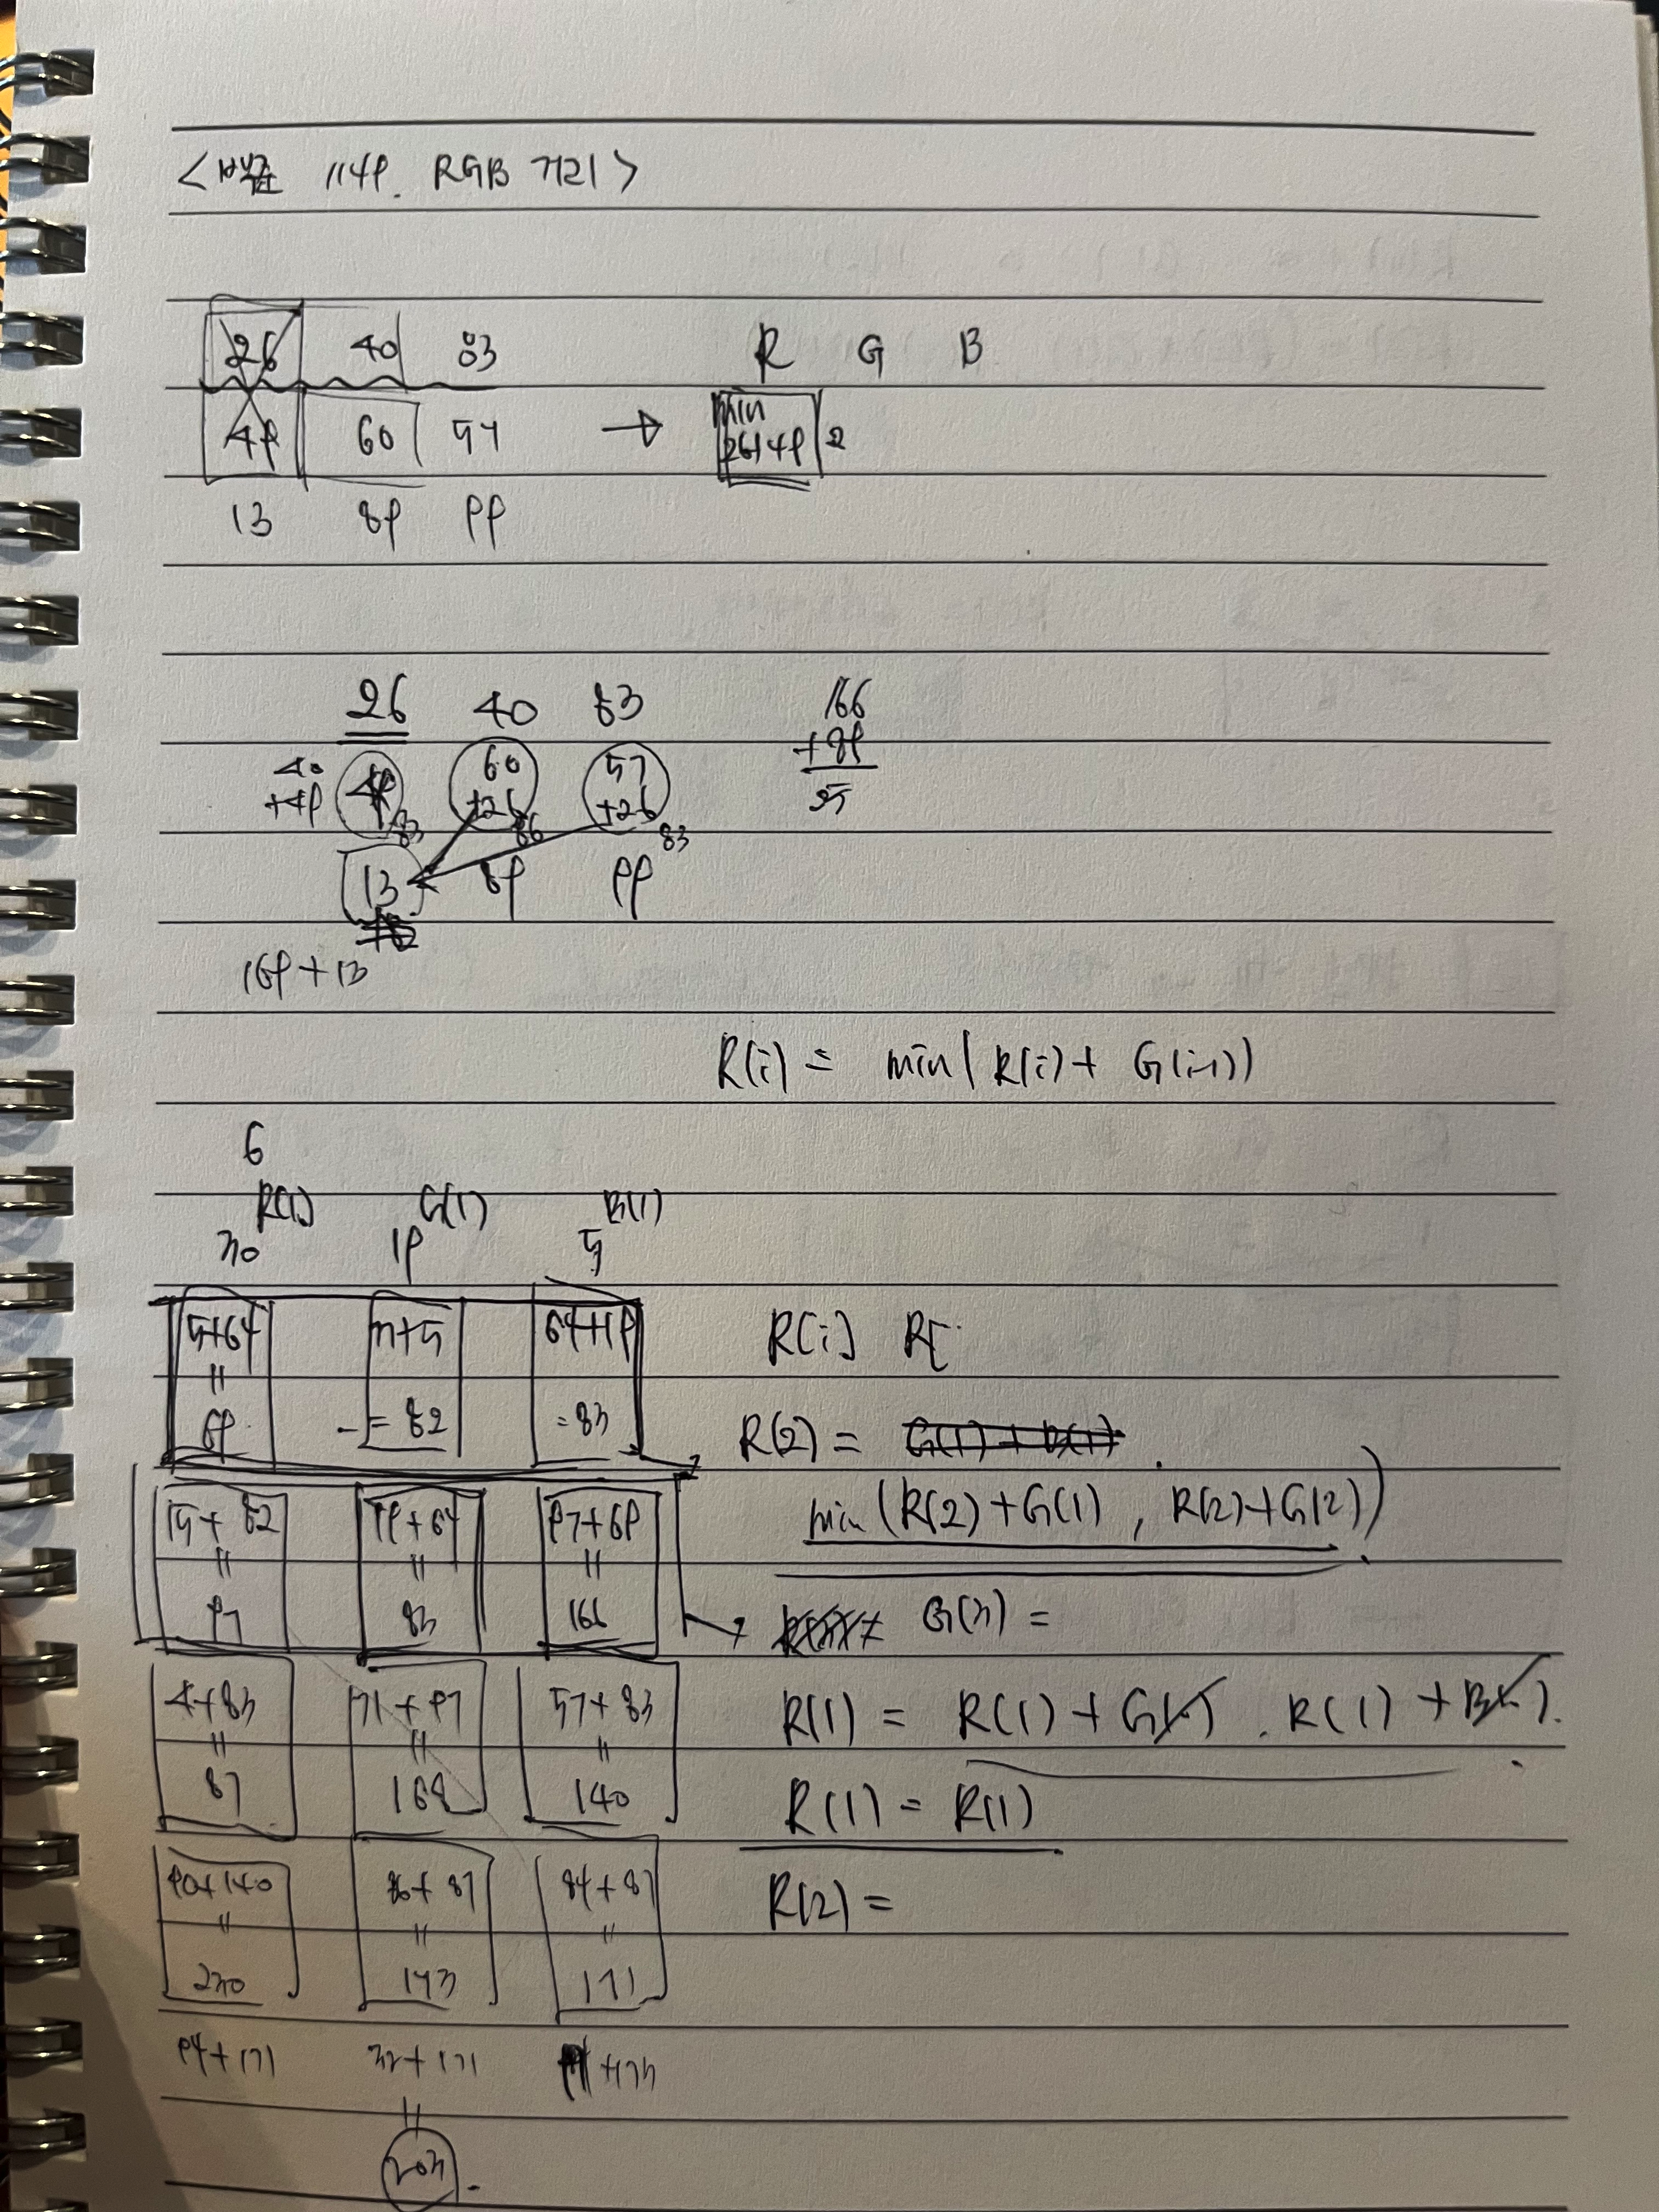 <백준 1149. RGB 거리>
26 40 83 R G B
49 60 57 → min 26+49 2
13 89 99
26 40 83 166
40 +49 49 60 +26 57 +26 +89
83 86 83
13 89 99
169+13
R(i) = min( R(i)+ G(i-1))
6
R(1) G(1) B(1)
30 19 5
5+64 77+5 64+19 R[i] R[
= 69 = 82 = 83 R(2) =
min (R(2)+G(1), R(2)+G(2))
15+82 19+64 97+69
= 97 = 83 = 166 G(3) =
4+83 71+97 57+83 R(1) = R(1)+G( ) . R(1) +B( ).
= 87 = 168 = 140 R(1) = R(1)
90+140 86+87 84+87 R(2) =
= 230 = 173 = 171
94+171 32+171 +173
= 203